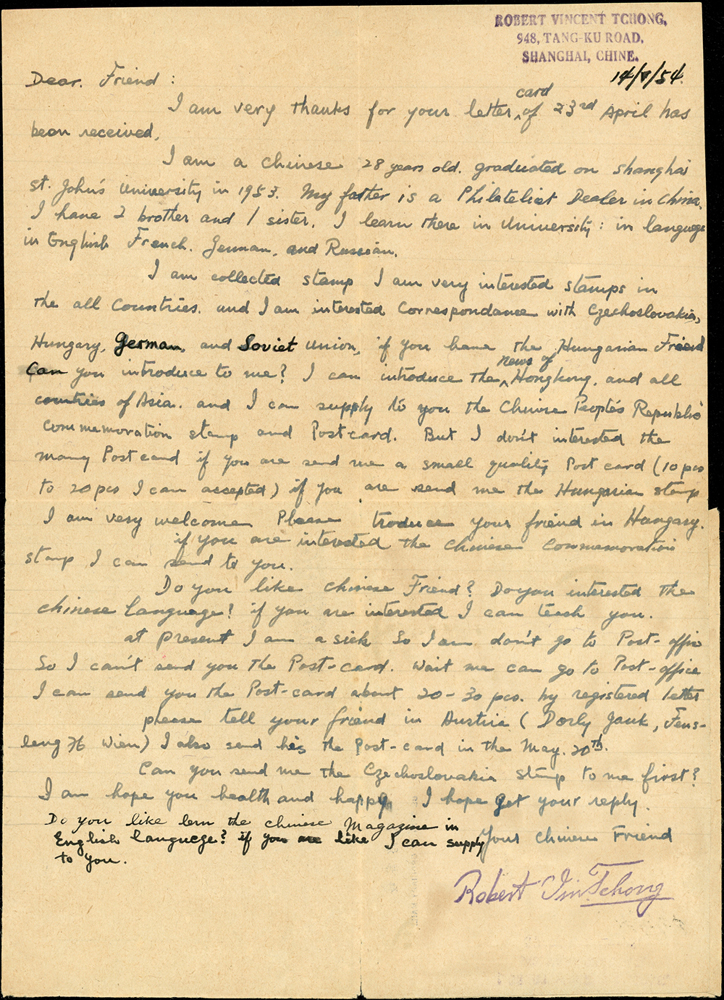 ROBERT VINCENT TCHONG,
948, TANG-KU ROAD,
SHANGHAI, CHINE.
Dear. Friend :
I am very thanks for your letter, card of 23rd April has
been received,
I am a chinese 28 years old. graduated on Shanghai
st. John's University in 1953. My father is a Philatelist Dealer in China,
I have 2 brother and 1 sister. I learn there in University : in language
in English French. German, and Russian.
I am collected stamp I am very interested stamps in
the all Countries. and I am interested Correspondance with Czechoslovakia,
Hungary, German, and Soviet Union, if you have the Hungarian Friend
Can you introduce to me? I can introduce the news of Hongkong. and all
countries of Asia. and I can supply to you the Chinese People's Republic
Commemoration stamp and Postcard. But I don't interested the
many Postcard if you are send me a small quality Post card (10 pcs
to 20 pcs I can accepted) if you are send me the Hungarian stamp
I am very welcome Please troduce your friend in Hungary.
if you are interested the chinese Commemoration
stamp I can send to you.
Do you like chinese Friend? Do you interested the
chinese language? if you are interested I can teach you.
at present I am a sick So I am don't go to Post-office
So I can't send you the Post-card. Wait me can go to Post-office
I can send you the Post-card about 20-30 pcs. by registered letter
please tell your friend in Austria ( Dorly
76 Wien) I also send his the Post-card in the May. 20th.
Can you send me the Czechoslovakia stamp to me first?
I am hope you health and happy I hope get your reply.
Do you like lern the chinese Magazine in
English languege? if you are like I can supply
to you.
Your chinese Friend
Robert Vin Tchong